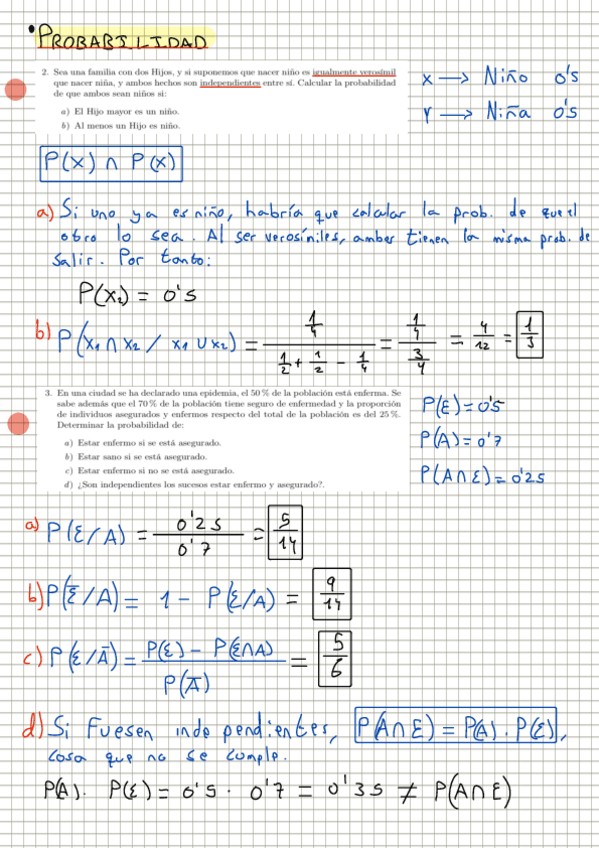 • PROBABILIDAD
2. Sea una familia con dos Hijos, y si suponemos que nacer niño es igualmente verosímil
que nacer niña, y ambos hechos son independientes entre sí. Calcular la probabilidad
de que ambos sean niños si:
a) El Hijo mayor es un niño.
b) Al menos un Hijo es niño.
x → Niño 0's
Y → Niña 0's
P(x) ∩ P(x)
a) Si uno ya es niño, habría que calcular la prob. de que el
otro lo sea. Al ser verosíniles, ambas tienen la misma prob. de
salir. Por tanto:
P(x₂) = 0's
b) P(x₁ ∩ x₂ / x₁ ∪ x₂) = (1/4) / (1/2 + 1/2 - 1/4) = (1/4) / (3/4) = 4/12 = 1/3
3. En una ciudad se ha declarado una epidemia, el 50 % de la población está enferma. Se
sabe además que el 70 % de la población tiene seguro de enfermedad y la proporción
de individuos asegurados y enfermos respecto del total de la población es del 25 %.
Determinar la probabilidad de:
a) Estar enfermo si se está asegurado.
b) Estar sano si se está asegurado.
c) Estar enfermo si no se está asegurado.
d) ¿Son independientes los sucesos estar enfermo y asegurado?.
P(E) = 0'5
P(A) = 0'7
P(A∩E) = 0'25
a) P(E/A) = 0'25 / 0'7 = 5/14
b) P(Ē/A) = 1 - P(E/A) = 9/14
c) P(E/Ā) = (P(E) - P(E∩A)) / P(Ā) = 5/6
d) Si Fuesen independientes, P(A∩E) = P(A) · P(E),
cosa que no se cumple.
P(A) · P(E) = 0'5 · 0'7 = 0'35 ≠ P(A∩E)